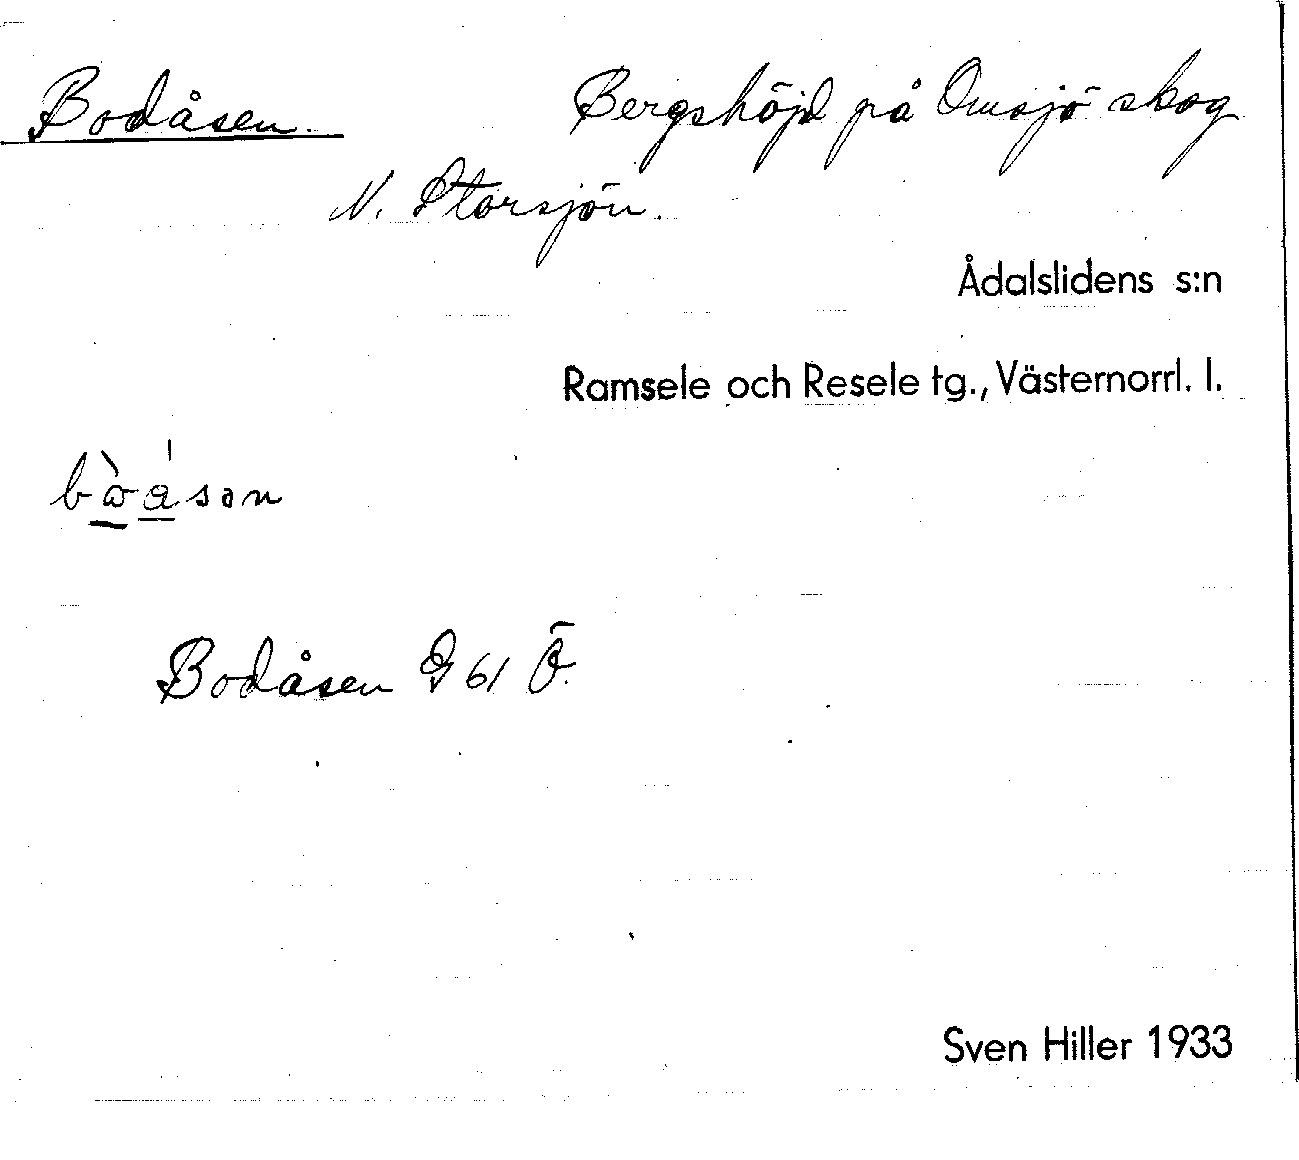 Bodåsen. Bergshöjd på Omsjö skog
N. Storsjön.
Ådalslidens s:n
Ramsele och Resele tg., Västernorrl. l.
Bodåsen G 61 Ö.
Sven Hiller 1933